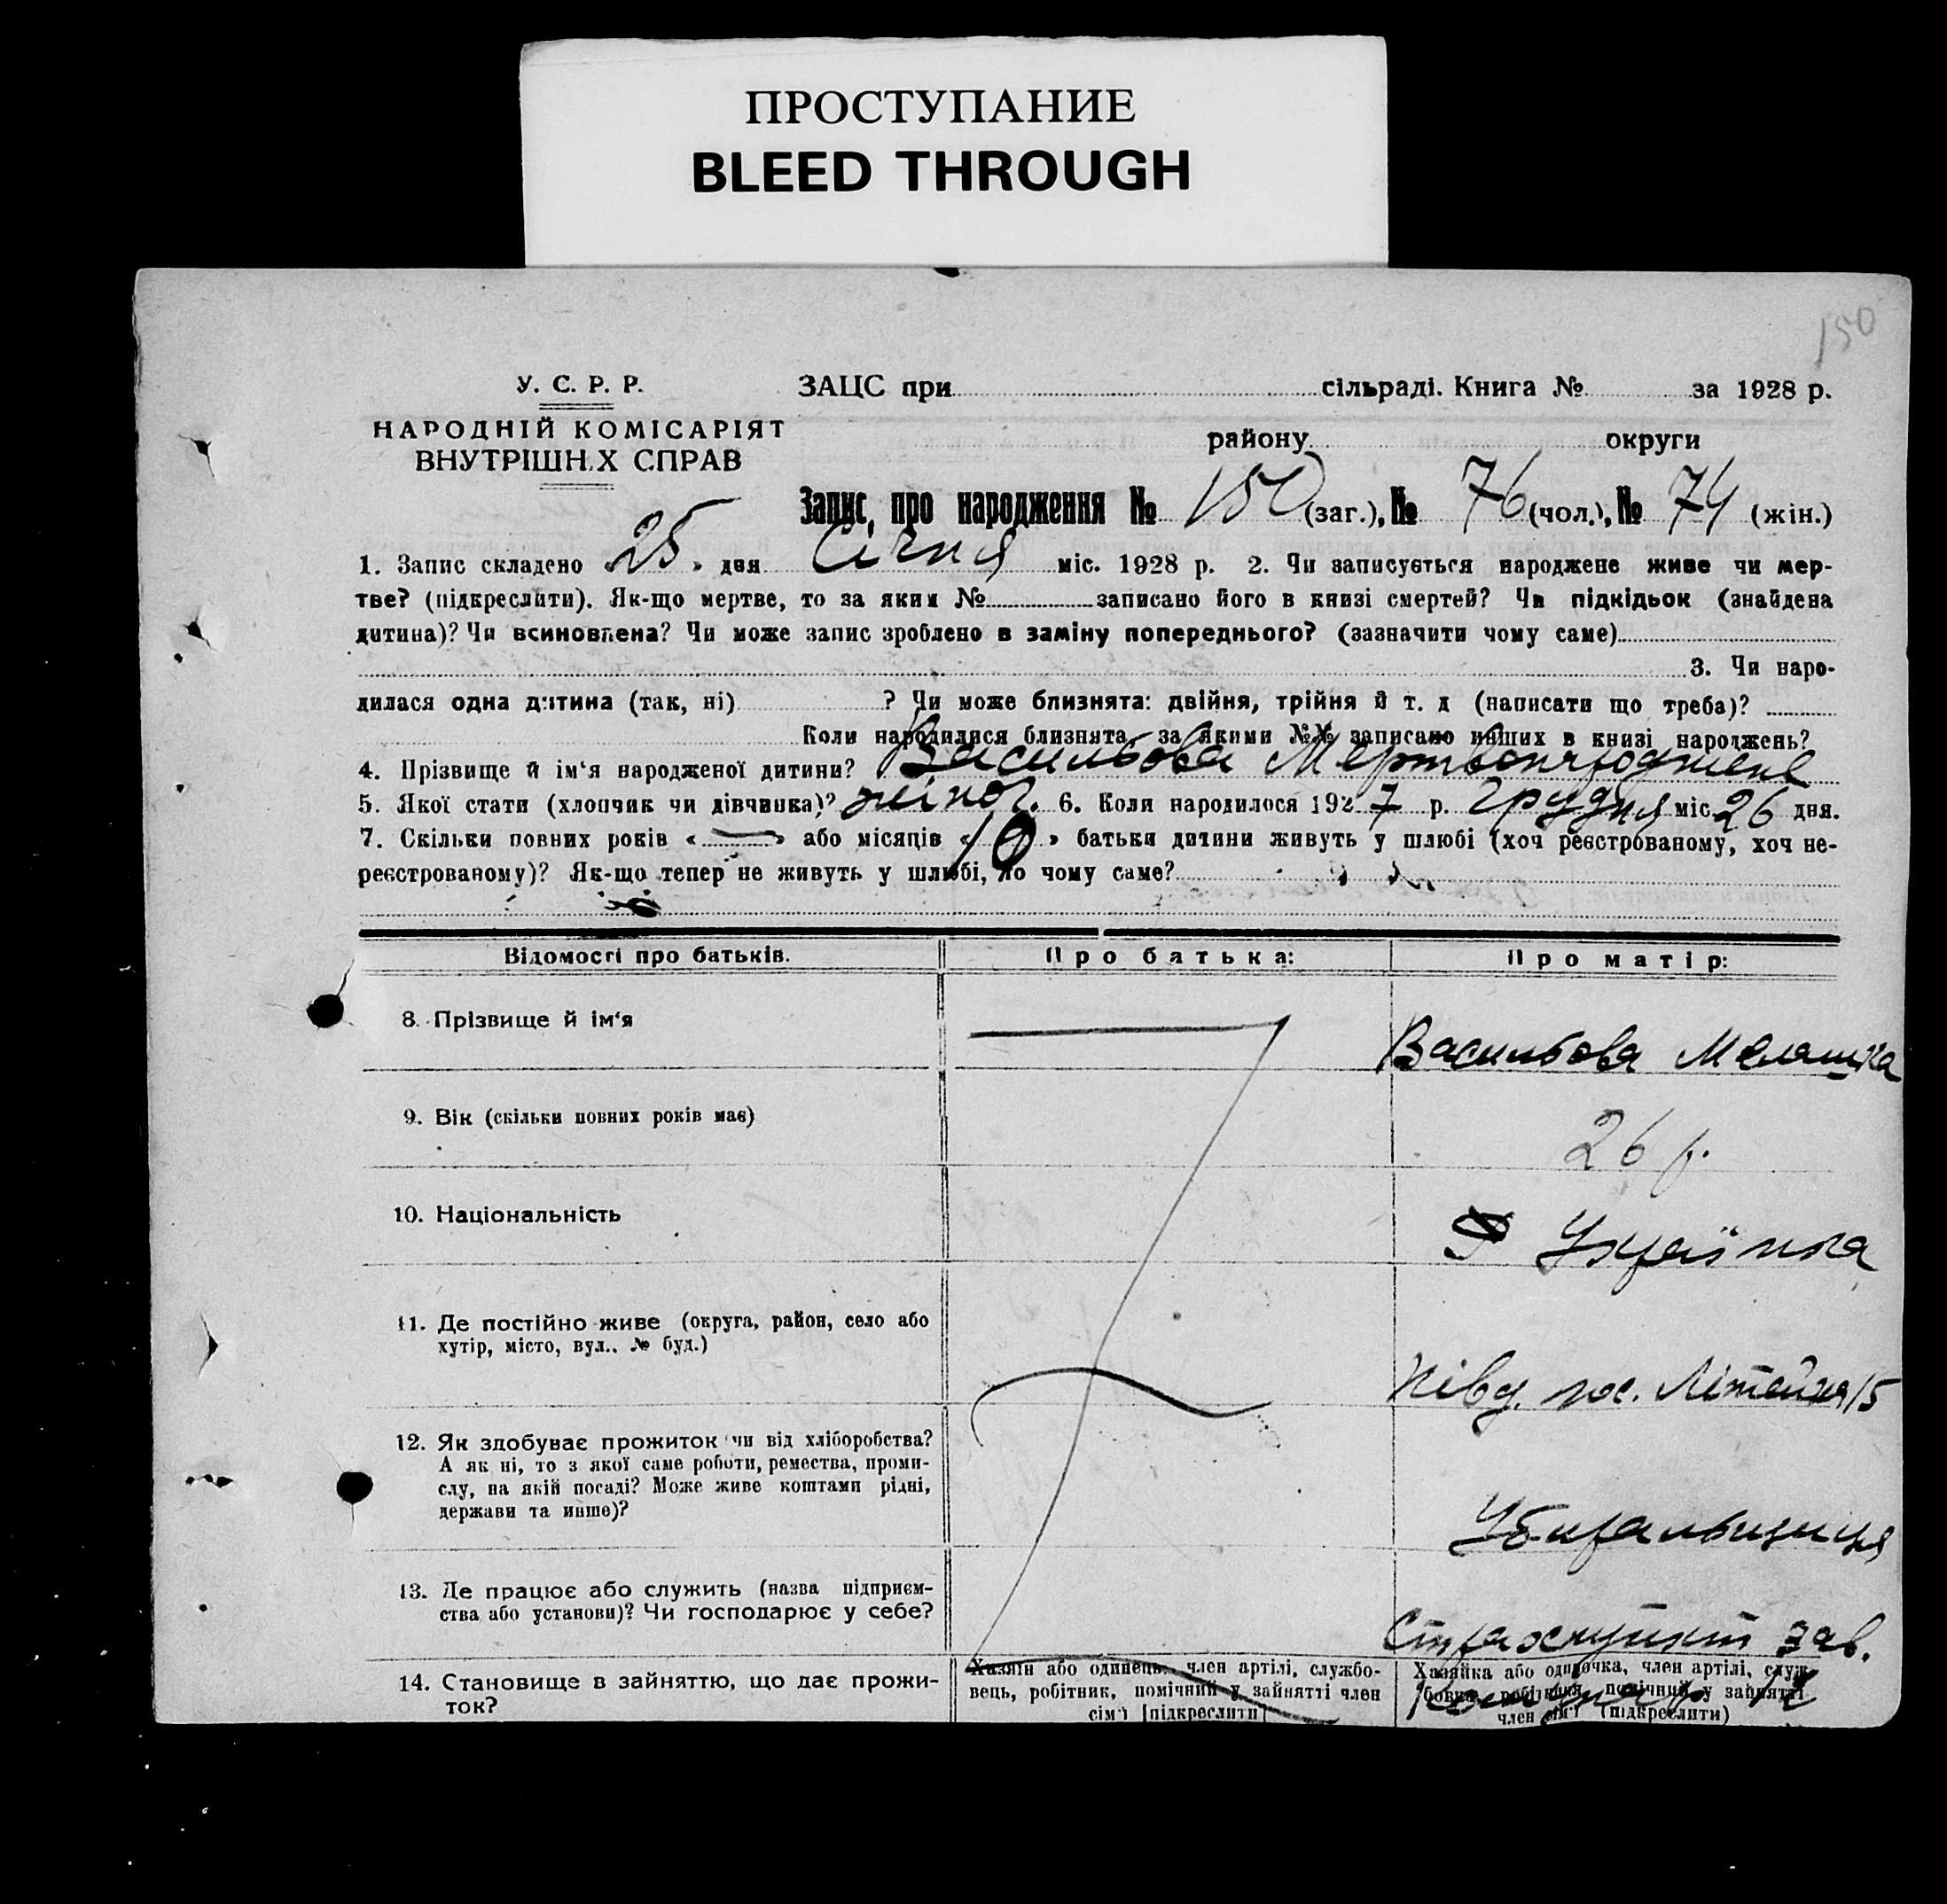 ПРОСТУПАНИЕ
BLEED THROUGH
150
У. С. Р. Р.
НАРОДНІЙ КОМІСАРІЯТ
ВНУТРІШН.Х СПРАВ
ЗАЦС при сільраді. Книга № за 1928 р.
району округи
Запис, про народження № 150 (заг.), № 76 (чол.), № 74 (жін.)
1. Запис складено « 25 » дня Січня міс. 1928 р. 2. Чи записується народжене живе чи мер-
тве? (підкреслити). Як-що мертве, то за яким № записано його в книзі смертей? Чи підкідьок (знайдена
дитина)? Чи всиновлена? Чи може запис зроблено в заміну попереднього? (зазначити чому саме)
3. Чи наро-
дилася одна дитина (так, ні) ? Чи може близнята: двійня, трійня й т. д (написати що треба)?
Коли народилися близнята, за якими №№ записано инших в книзі народжень?
4. Прізвище й ім‘я народженої дитини? Васильова Мертвонароджене
5. Якої стати (хлопчик чи дівчинка)? жіноч. 6. Коли народилося 192 7 р. Грудня міс 26 дня.
7. Скільки повних років « — » або місяців « 10 » батьки дитини живуть у шлюбі (хоч реєстрованому, хоч не-
реєстрованому)? Як-що тепер не живуть у шлюбі, то чому саме?
Відомості про батьків. Про батька: Про матір:
8. Прізвище й ім‘я Васильова Мелашка
9. Вік (скільки повних років має) 26 р.
10. Національність Українка
11. Де постійно живе (округа, район, село або
хутір, місто, вул., № буд.)
Півд. пос. Літейня 15
12. Як здобуває прожиток чи від хліборобства?
А як ні, то з якої саме роботи, ремества, проми-
слу, на якій посаді? Може живе коштами рідні,
держави та инше)?
Убиральщиця
13. Де працює або служить (назва підприєм-
ства або установи)? Чи господарює у себе?
зав.
14. Становище в зайняттю, що дає прожи-
ток?
Хазяїн або одинець, член артілі, службо-
вець, робітник, помічний у зайнятті член
сім‘ї [підкреслити]
Хазяйка або одиночка, член артілі, служ-
бовка, робітниця, помічний у зайнятті
член сім‘ї (підкреслити)